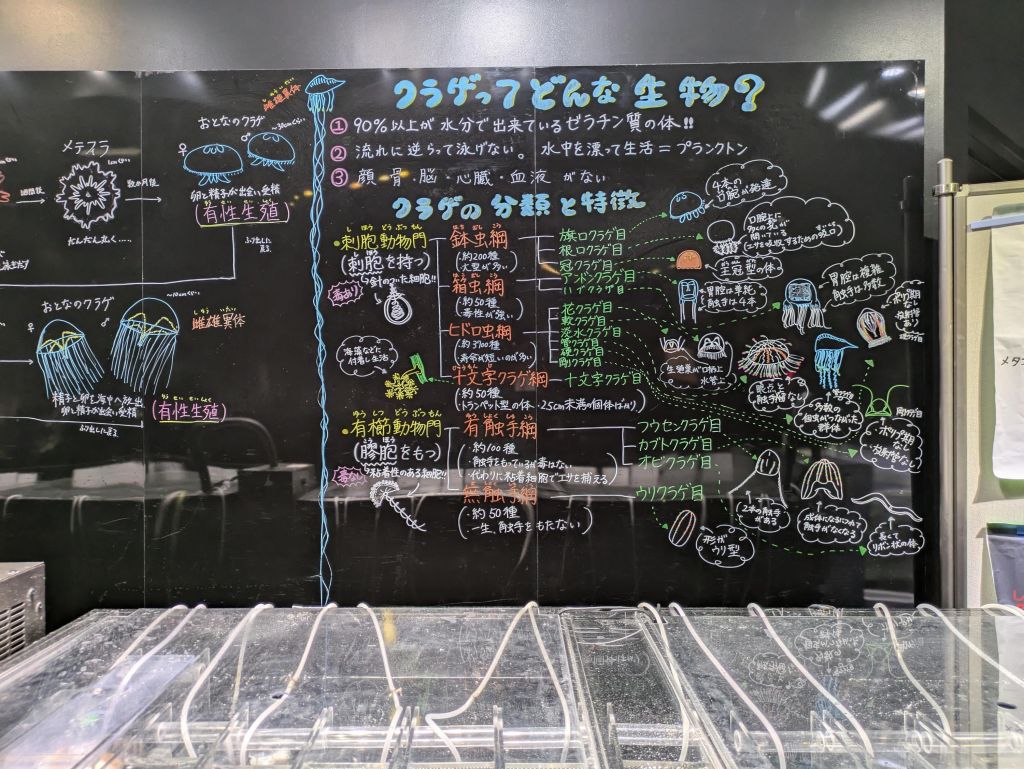 クラゲってどんな生物?
① 90%以上が水分で出来ているゼラチン質の体!!
② 流れに逆らって泳げない。水中を漂って生活=プランクトン
③ 顔・骨・脳・心臓・血液がない
クラゲの分類と特徴
しほうどうぶつもん
・刺胞動物門
(刺胞を持つ)
毒あり
鉢虫綱
(約200種
大型が多い)
旗口クラゲ目
根口クラゲ目
冠クラゲ目
箱虫綱
(約50種
毒性が強い)
アンドンクラゲ目
ヒドロ虫綱
(約3700種
寿命が短いのが多い)
花クラゲ目
軟クラゲ目
淡水クラゲ目
管クラゲ目
硬クラゲ目
剛クラゲ目
海藻などに
付着し生活
十文字クラゲ綱
十文字クラゲ目
(・約50種
・トランペット型の体・2.5cm未満の個体ばかり)
ゆうしつどうぶつもん
・有櫛動物門
(膠胞をもつ)
粘着性のある細胞!!
毒なし
有触手綱
・約100種
・触手をもっているが毒はない
(代わりに粘着細胞でエサを捕える)
フウセンクラゲ目
カブトクラゲ目
オビクラゲ目
無触手綱
(・約50種
・一生、触手をもたない)
ウリクラゲ目
4本の
口腕が発達
王冠型の体
胃腔は単純
触手は4本
胃腔は複雑
触手は多数
多数の
個虫がつながった
群体
ポリプ期
放射管なし
2本の触手
がある
成体になるにつれて
触手がなくなる
長くて
リボン状の体
形が
ウリ型
メテフラ
だんだん丸く…
数か月後
おとなのクラゲ
♀
♂
〜30cmぐらい
卵と精子が出会い受精
(有性生殖)
ふりだしに
戻る
しゆういたい
雌雄異体
おとなのクラゲ
♀
♂
〜10cmぐらい
しゆういたい
雌雄異体
精子と卵を海中へ放出
卵と精子が出会い受精
ゆうせいせいしょく
(有性生殖)
ふりだしに戻る